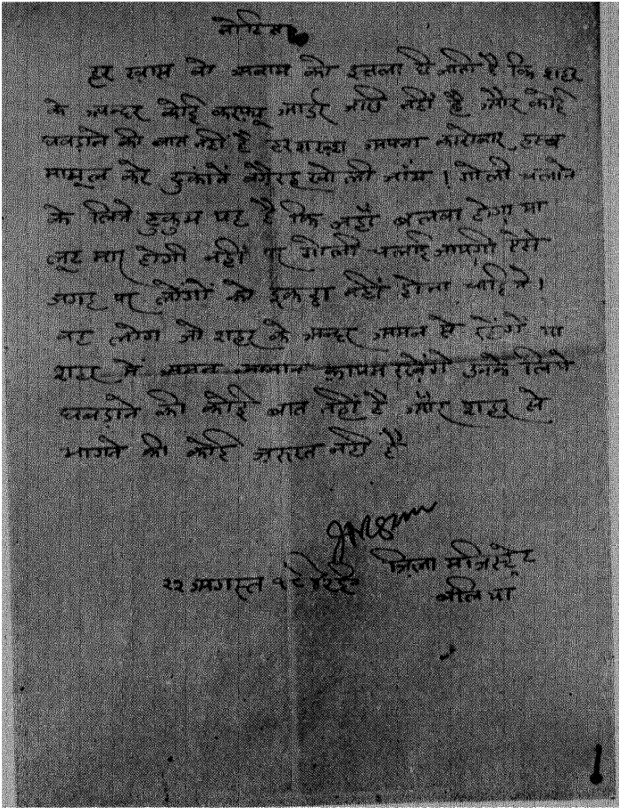 नोटिस
हर ख़ास वो अवाम को इत्तला दी जाती है कि शहर
के अन्दर कोई करफ्यू आर्डर जारी नहीं है और कोई
घबड़ाने की बात नहीं है हर शख़्श अपना कारोबार हस्ब
मामूल करे दुकानें वगैरह खोली जाँय । गोली चलाने
के लिये हुकुम यह है कि जहाँ बलवा होगा या
लूट मार होगी वहीं पर गोली चलाई जायगी ऐसी
जगह पर लोगों को इकट्ठा नहीं होना चाहिये ।
वह लोग जो शहर के अन्दर अमन से रहेंगे या
शहर में अमन आमान क़ायम रखेंगे उनके लिये
घबड़ाने की कोई बात नहीं है और शहर से
भागने की कोई जरूरत नहीं है
ज़िला मजिस्ट्रेट
२२ अगस्त
बलिया